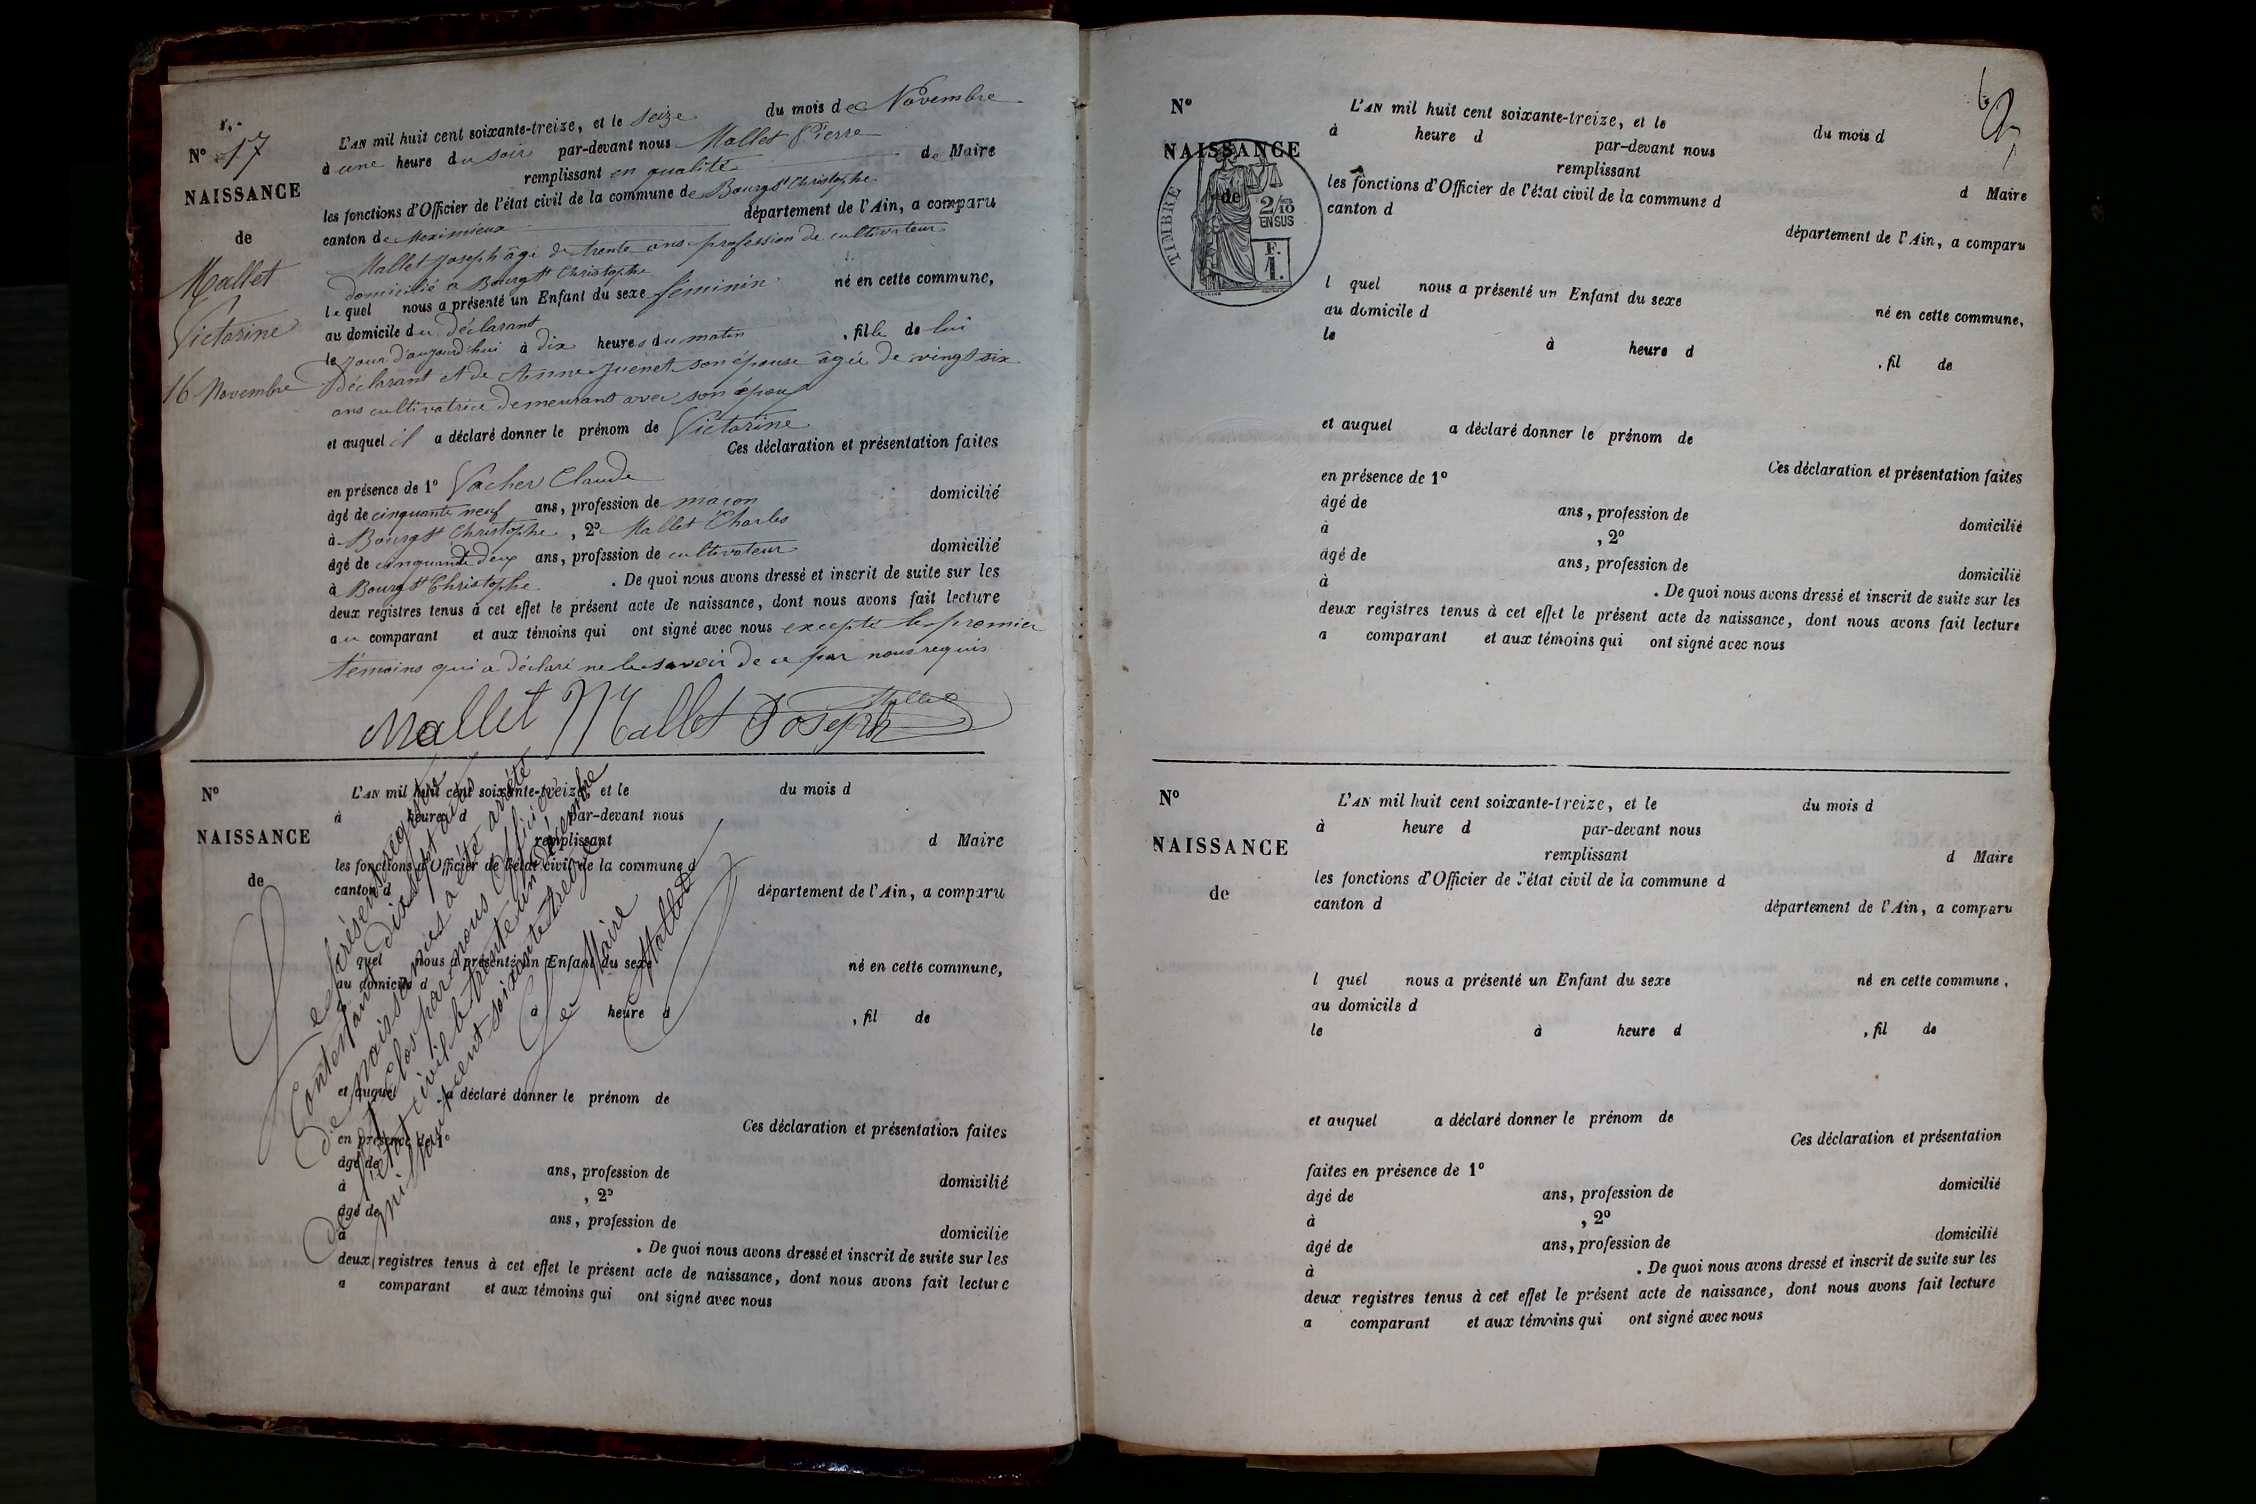 N° 17
NAISSANCE
de
Mallet
Victorine
16 Novembre
L'AN mil huit cent soixante-treize, et le seize du mois de Novembre
à une heure du soir par-devant nous Mallet Pierre
remplissant en qualité de Maire
les fonctions d'Officier de l'état civil de la commune de Bourg St Christophe
canton de Meximieux département de l'Ain, a comparu
Mallet Joseph âgé de trente ans profession de cultivateur
domicilié a Bourg St Christophe
lequel nous a présenté un Enfant du sexe féminin né en cette commune,
au domicile du déclarant
le jour d'aujourd'hui à dix heures du matin, fille de lui
déclarant et de Anne Juenet son épouse âgée de vingt six
ans cultivatrice demeurant avec son époux
et auquel il a déclaré donner le prénom de Victorine
Ces déclaration et présentation faites
en présence de 1° Vacher Claude
âgé de cinquante neuf ans, profession de maçon domicilié
à Bourg St Christophe, 2° Mallet Charles
âgé de cinquante deux ans, profession de cultivateur domicilié
à Bourg St Christophe. De quoi nous avons dressé et inscrit de suite sur les
deux registres tenus à cet effet le présent acte de naissance, dont nous avons fait lecture
au comparant et aux témoins qui ont signé avec nous excepté le premier
témoins qui a déclaré ne le savoir de ce par nous requis
Mallet Mallet Joseph Mallet
N°
NAISSANCE
de
L'AN mil huit cent soixante-treize, et le du mois d
à heure d par-devant nous
remplissant d Maire
les fonctions d'Officier de l'état civil de la commune d
canton d département de l'Ain, a comparu
l quel nous a présenté un Enfant du sexe né en cette commune,
au domicile d
le à heure d, fil de
et auquel a déclaré donner le prénom de
Ces déclaration et présentation faites
en présence de 1°
âgé de ans, profession de domicilié
à, 2°
âgé de ans, profession de domicilié
à. De quoi nous avons dressé et inscrit de suite sur les
deux registres tenus à cet effet le présent acte de naissance, dont nous avons fait lecture
a comparant et aux témoins qui ont signé avec nous
Le présent registre
Contenant dix sept actes
de naissances a été arrêté
et clos par nous Officier
de l'état civil le trente un décembre
mil huit cent soixante treize
Le Maire
Mallet
N°
NAISSANCE
de
TIMBRE
2/10
EN SUS
F.
1.
L'AN mil huit cent soixante-treize, et le du mois d
à heure d par-devant nous
remplissant d Maire
les fonctions d'Officier de l'état civil de la commune d
canton d département de l'Ain, a comparu
l quel nous a présenté un Enfant du sexe né en cette commune,
au domicile d
le à heure d, fil de
et auquel a déclaré donner le prénom de
Ces déclaration et présentation faites
en présence de 1°
âgé de ans, profession de domicilié
à, 2°
âgé de ans, profession de domicilié
à. De quoi nous avons dressé et inscrit de suite sur les
deux registres tenus à cet effet le présent acte de naissance, dont nous avons fait lecture
a comparant et aux témoins qui ont signé avec nous
N°
NAISSANCE
de
L'AN mil huit cent soixante-treize, et le du mois d
à heure d par-devant nous
remplissant d Maire
les fonctions d'Officier de l'état civil de la commune d
canton d département de l'Ain, a comparu
l quel nous a présenté un Enfant du sexe né en cette commune,
au domicile d
le à heure d, fil de
et auquel a déclaré donner le prénom de
Ces déclaration et présentation
faites en présence de 1°
âgé de ans, profession de domicilié
à, 2°
âgé de ans, profession de domicilié
à. De quoi nous avons dressé et inscrit de suite sur les
deux registres tenus à cet effet le présent acte de naissance, dont nous avons fait lecture
a comparant et aux témoins qui ont signé avec nous